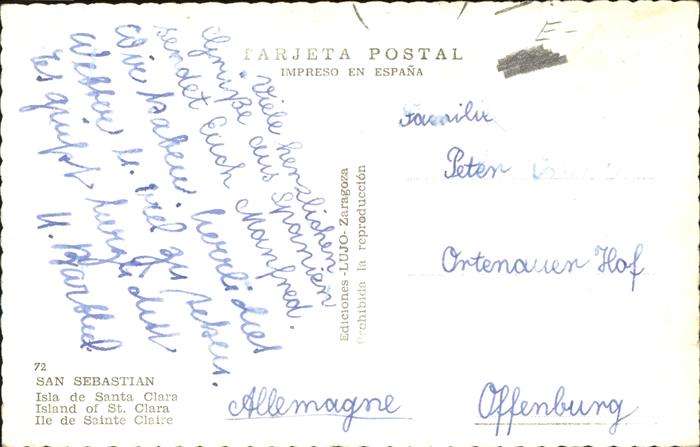 E-
TARJETA POSTAL
IMPRESO EN ESPAÑA
Viele herzlichen
Grüße aus Spanien
sendet Euch Manfred.
Wir haben herrliches
Wetter u. viel zu sehen.
Es grüßt herzlichst
Familie
Peter
Ortenauer Hof
Offenburg
Allemagne
Ediciones-LUJO-Zaragoza
Prohibida la reproducción
72
SAN SEBASTIAN
Isla de Santa Clara
Island of St. Clara
Ile de Sainte Claire